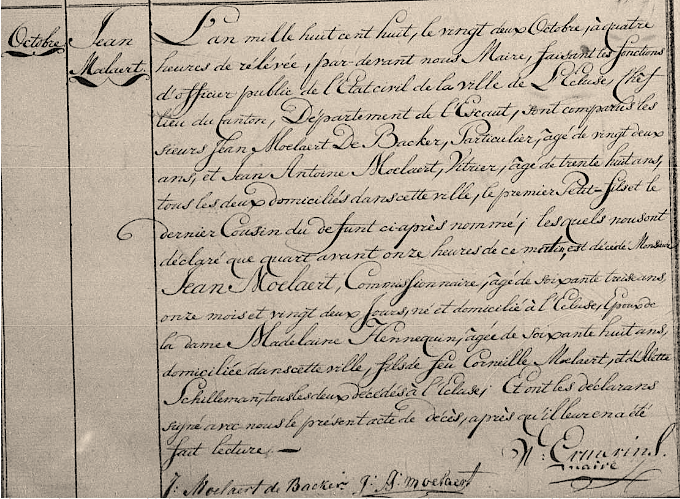 Octobre
Jean
Moelaert.
L'an mille huit cent huit, le vingt deux Octobre, à quatre
heures de rélevée, par-devant nous Maire, faisant les fonctions
d'officier public de l'Etat civil de la ville de L'Ecluse, Chef
lieu du Canton, Département de l'Escaut, sont comparus les
sieurs Jean Moelaert De Backer, Particulier, âgé de vingt deux
ans, et Jean Antoine Moelaert, Vitrier, âgé de trente huit ans,
tous les deux domiciliés dans cette ville, le premier Petit-fils et le
dernier Cousin du defunt ci-après nommé; les quels nous ont
déclaré que quart avant onze heures de ce matin, est décédé Monsieur
Jean Moelaert, Commissionnaire, âgé de soixante treize ans,
onze mois et vingt deux Jours, né et domicilié à l'Ecluse, Epoux de
la dame Madelaine Hennequin, âgée de soixante huit ans,
domiciliée dans cette ville, fils de feu Corneille Moelaert, et d'
Schilleman, tous les deux décédés à l'Ecluse; Et ont les déclarans
signé avec nous le présent acte de décès, après qu'il leur en a été
fait lecture. —
maire
J: Moelaert de Backer J: A: Moelaert